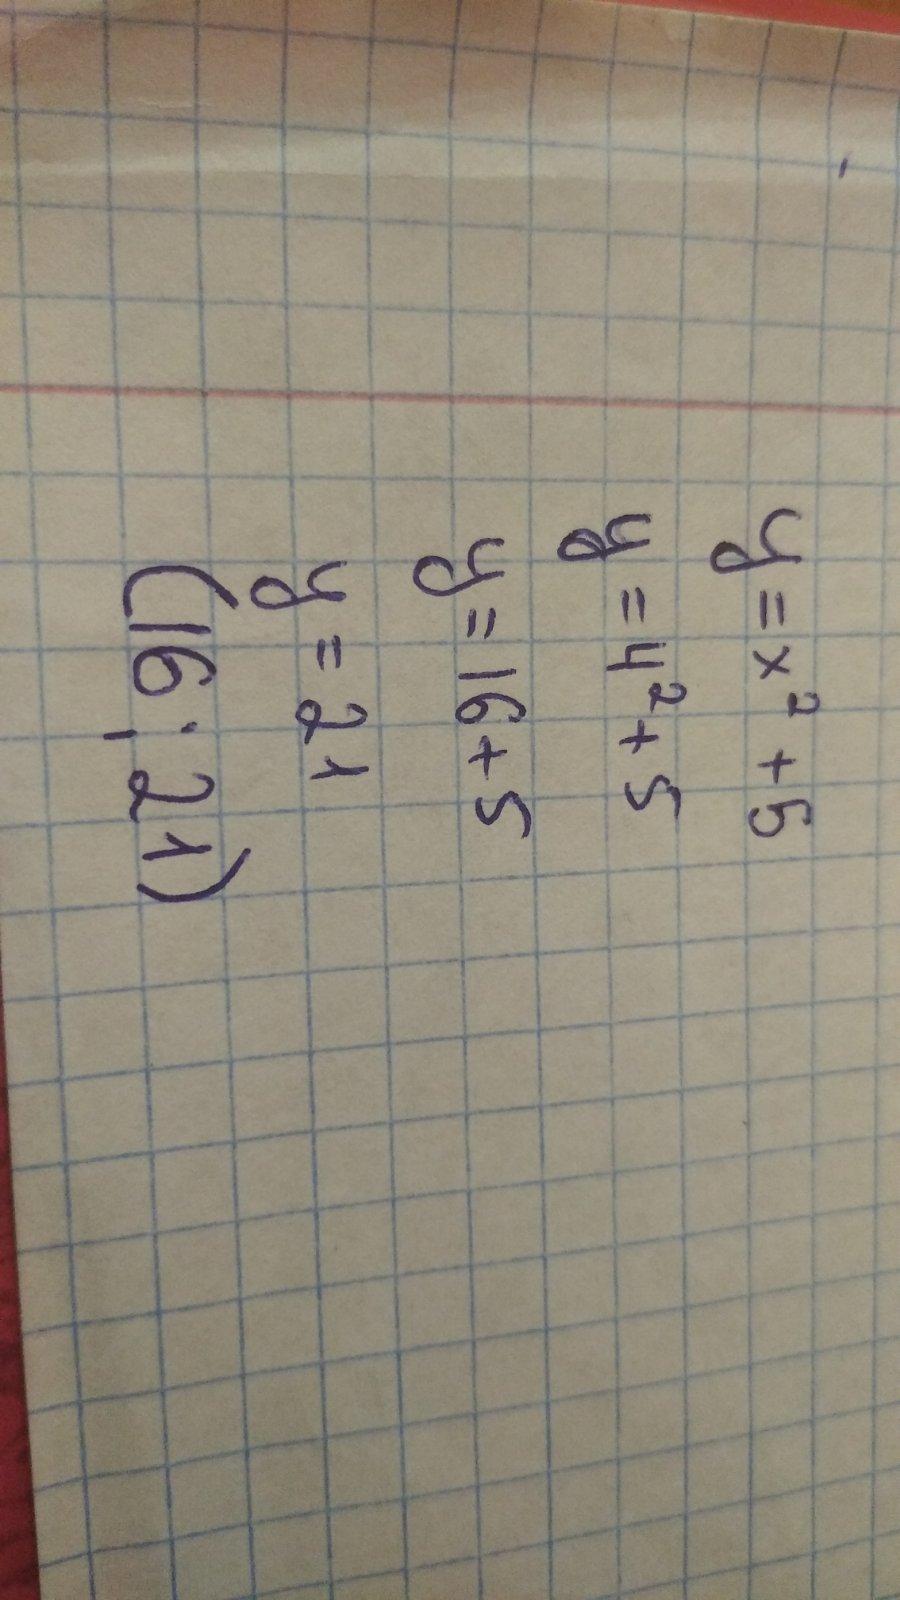 y = x² + 5
y = 4² + 5
y = 16 + 5
y = 21
(16 ; 21)